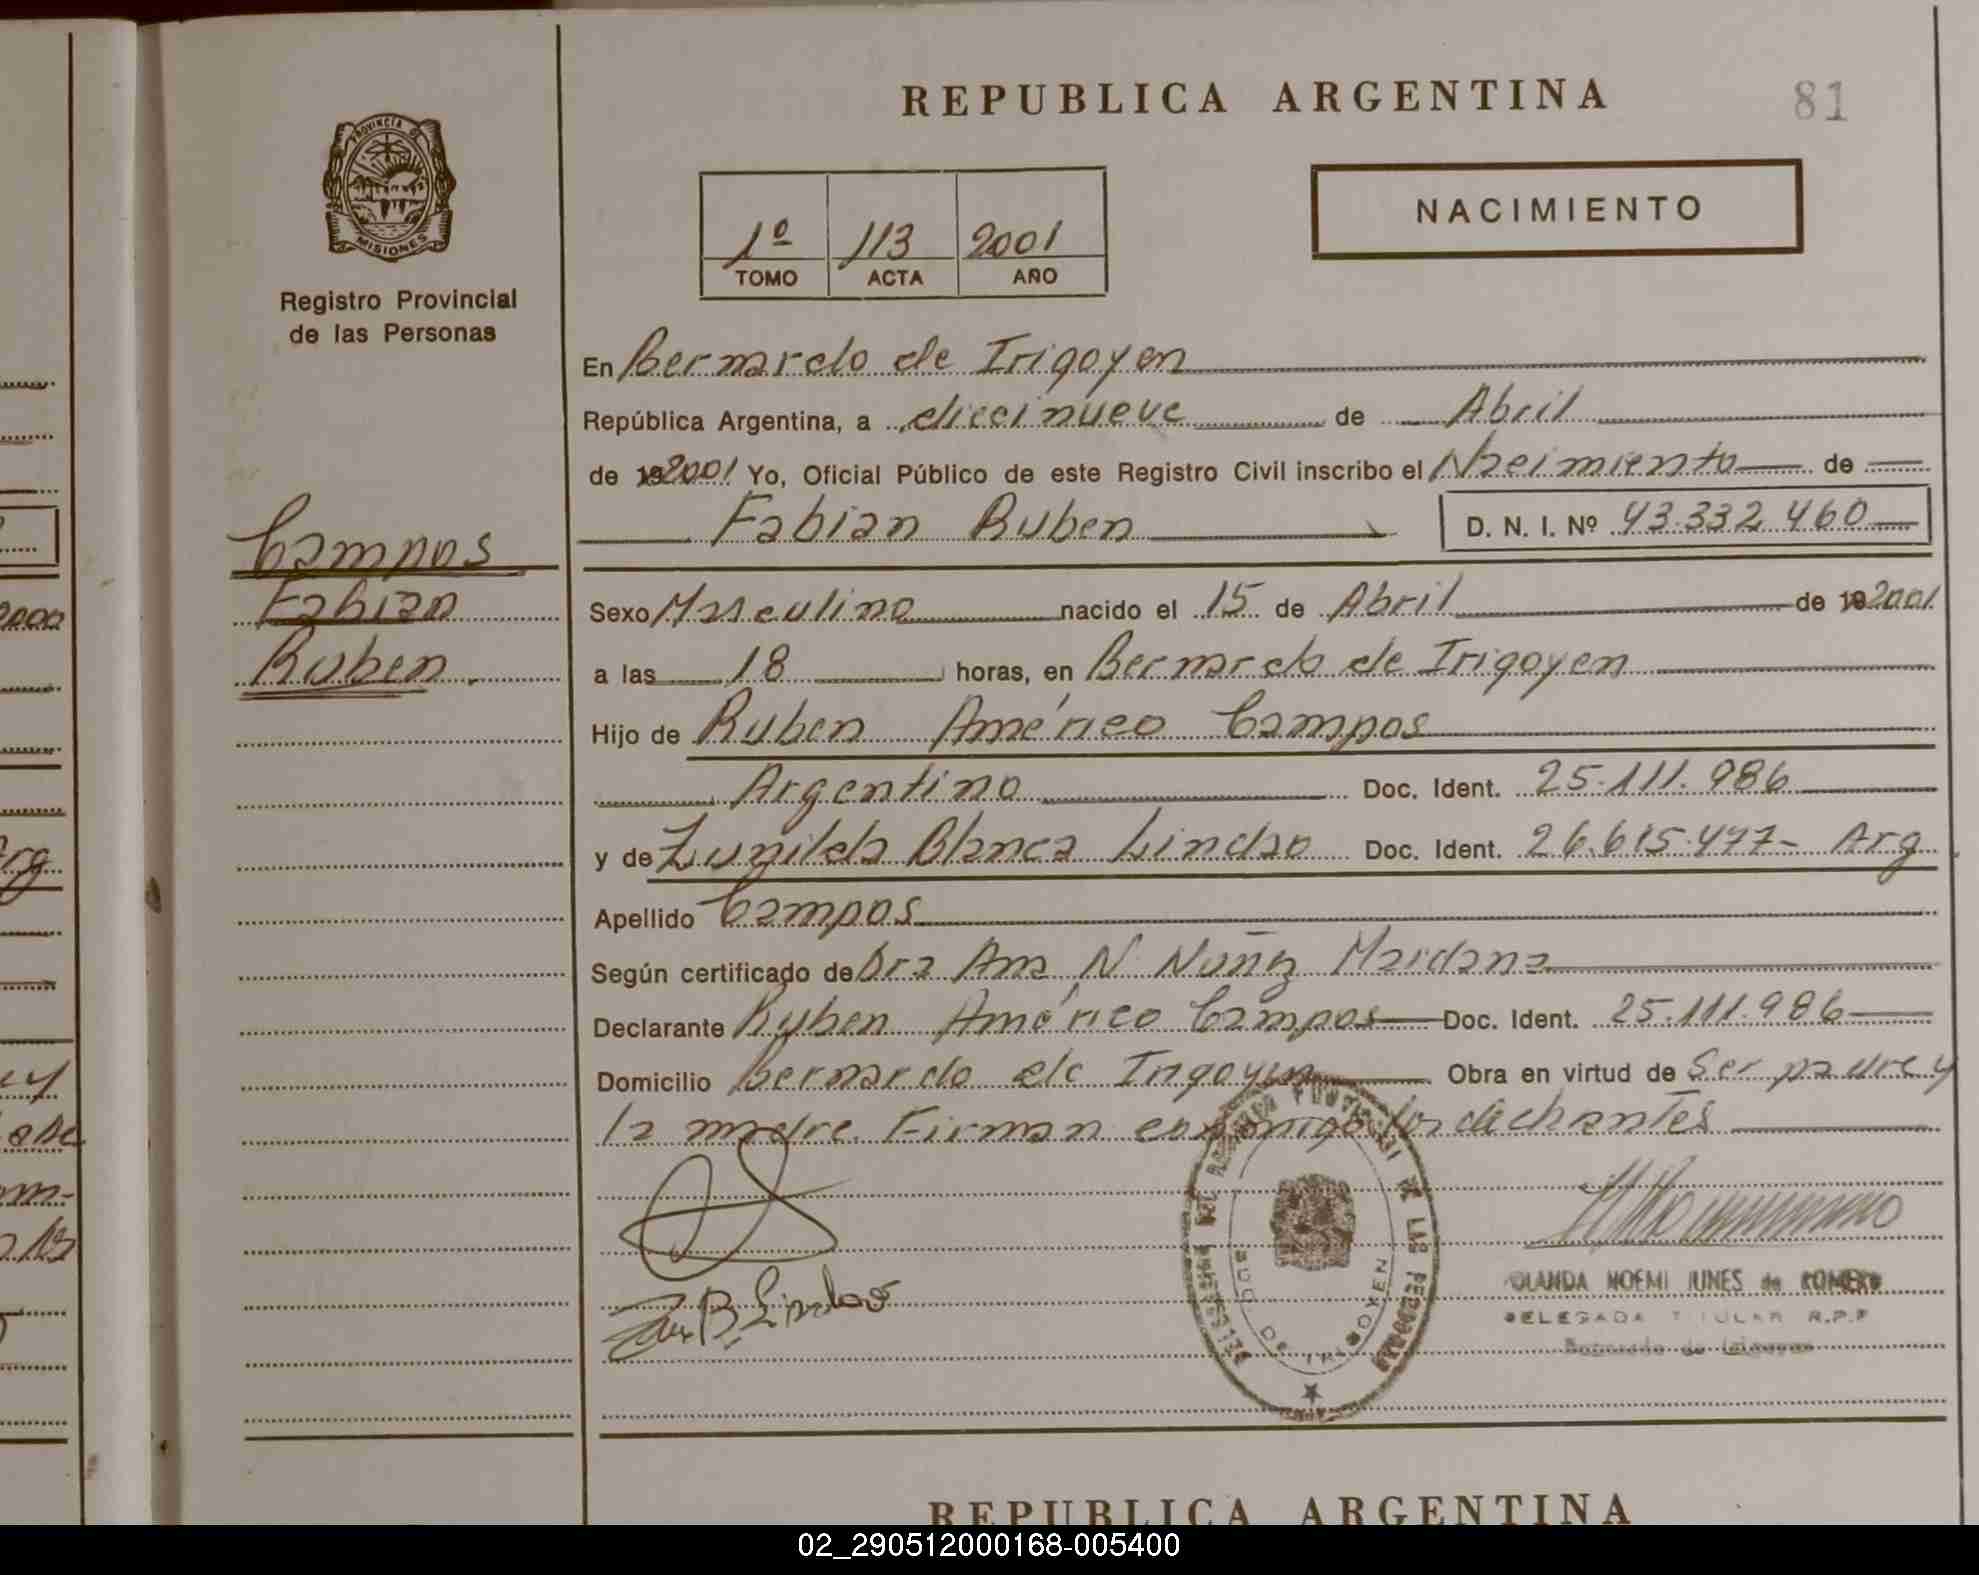 REPUBLICA ARGENTINA
81
PROVINCIA DE
MISIONES
Registro Provincial
de las Personas
1º 113 2001
TOMO ACTA AÑO
NACIMIENTO
En Bernardo de Irigoyen
República Argentina, a diecinueve de Abril
de 192001 Yo, Oficial Público de este Registro Civil inscribo el Nacimiento de
Fabian Ruben D. N. I. Nº 43.332.460
Campos
Fabian
Ruben.
Sexo Masculino nacido el 15 de Abril de 192001
a las 18 horas, en Bernardo de Irigoyen
Hijo de Ruben Américo Campos
Argentino Doc. Ident. 25.111.986
y de Zunilda Blanca Lindao Doc. Ident. 26.615.477- Arg
Apellido Campos
Según certificado de Dra Ana N. Nuñez Maidana
Declarante Ruben Américo Campos Doc. Ident. 25.111.986
Domicilio Bernardo de Irigoyen Obra en virtud de Ser padre y
la madre. Firman conmigo los declarantes
B. Lindao
OLANDA NOEMI IUNES de ROMERO
DELEGADA TITULAR R.P.P
Bernardo de Irigoyen
REPUBLICA ARGENTINA
02_290512000168-005400